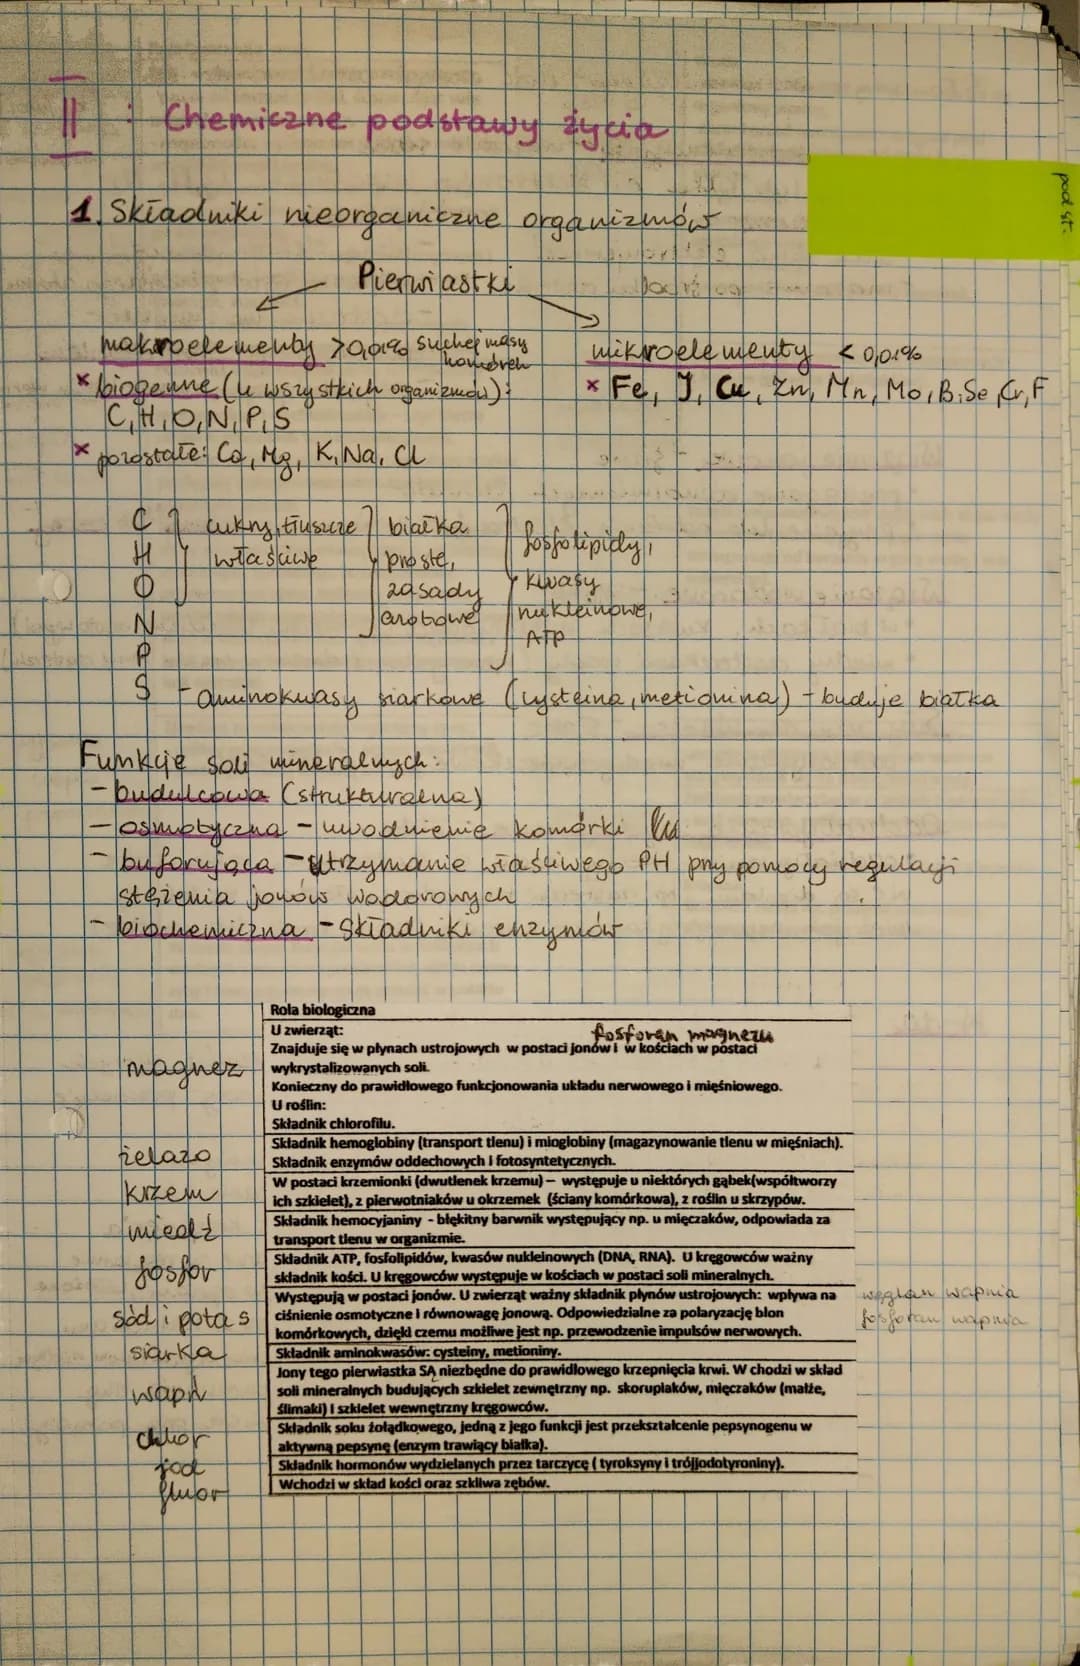 II : Chemiczne podstawy życia
pod st.
1. Składniki nieorganiczne organizmów
Pierwiastki
makroelementy >0,01% suchej masy komórek
mikroelementy < 0,01%
× biogenne (u wszystkich organizmów):
C, H, O, N, P, S
× Fe, J, Cu, Zn, Mn, Mo, B, Se, Cr, F
× pozostałe: Ca, Mg, K, Na, Cl
C
H
O
N
P
S
cukry, tłuszcze
właściwe
białka
proste,
zasady
azotowe
fosfolipidy,
kwasy
nukleinowe,
ATP
- aminokwasy siarkowe (cysteina, metionina) - buduje białka
Funkcje soli mineralnych:
- budulcowa (strukturalna)
- osmotyczna - uwodnienie komórki
- buforująca - utrzymanie właściwego PH przy pomocy regulacji
stężenia jonów wodorowych
- biochemiczna - składniki enzymów
Rola biologiczna
magnez
U zwierząt:
fosforan magnezu
Znajduje się w płynach ustrojowych w postaci jonów i w kościach w postaci
wykrystalizowanych soli.
Konieczny do prawidłowego funkcjonowania układu nerwowego i mięśniowego.
U roślin:
Składnik chlorofilu.
żelazo
Składnik hemoglobiny (transport tlenu) i mioglobiny (magazynowanie tlenu w mięśniach).
Składnik enzymów oddechowych i fotosyntetycznych.
krzem
W postaci krzemionki (dwutlenek krzemu) – występuje u niektórych gąbek(współtworzy
ich szkielet), z pierwotniaków u okrzemek (ściany komórkowa), z roślin u skrzypów.
miedź
Składnik hemocyjaniny - błękitny barwnik występujący np. u mięczaków, odpowiada za
transport tlenu w organizmie.
fosfor
Składnik ATP, fosfolipidów, kwasów nukleinowych (DNA, RNA). U kręgowców ważny
składnik kości. U kręgowców występuje w kościach w postaci soli mineralnych.
węglan wapnia
fosforan wapnia
sód i potas
Występują w postaci jonów. U zwierząt ważny składnik płynów ustrojowych: wpływa na
ciśnienie osmotyczne i równowagę jonową. Odpowiedzialne za polaryzację błon
komórkowych, dzięki czemu możliwe jest np. przewodzenie impulsów nerwowych.
siarka
Składnik aminokwasów: cysteiny, metioniny.
wapń
Jony tego pierwiastka SĄ niezbędne do prawidłowego krzepnięcia krwi. W chodzi w skład
soli mineralnych budujących szkielet zewnętrzny np. skorupiaków, mięczaków (małże,
ślimaki) i szkielet wewnętrzny kręgowców.
chlor
Składnik soku żołądkowego, jedną z jego funkcji jest przekształcenie pepsynogenu w
aktywną pepsynę (enzym trawiący białka).
jod
Składnik hormonów wydzielanych przez tarczycę ( tyroksyny i trójjodotyroniny).
fluor
Wchodzi w skład kości oraz szkliwa zębów.